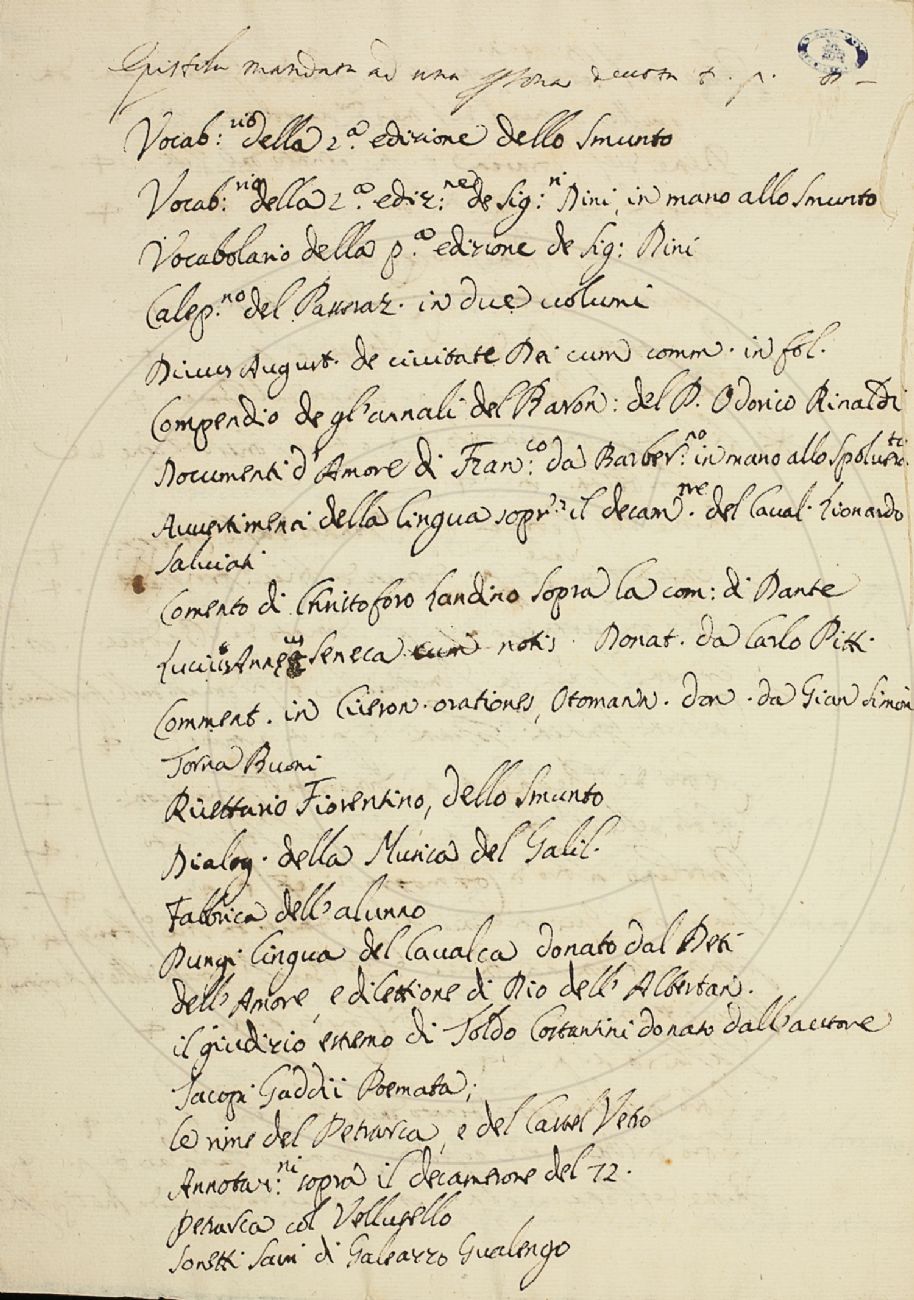 Epistola mandata ad una
Vocab:rio della 2.a edizione dello Smunto
Vocab:rio della 2.a ediz:ne de Sig:ri Dini in mano allo Smunto
Vocabolario della p.a edizione de Sig: Dini
Calep.no del Passeraz. in due uolumi
Diuus August. de ciuitate Dei cum comm. in fol.
Compendio de gl'annali del Baron: del P. Odorico Rinaldi
Documenti d'Amore di Fran:co da Barber:no in mano allo
Auuertimenti della lingua sopra il decam:ne. del Caual. Lionardo
Saluiati
Comento di Christoforo Landino sopra la com: di Dante
Lucius Anneus Seneca cum notis Donat. da Carlo Pitti
Comment. in Ciceron. orationes, Otomann. don. da Gian Simon
Torna Buoni
Ricettario Fiorentino, dello Smunto
Dialog. della Musica del Galil.
Fabbrica dell'alunno
Pungi lingua del Caualca donato dal Deti
dell'Amore, e dilettione di Dio dell'Albertan.
il giudizio estremo di Toldo Costantini donato dall'autore
Jacopi Gaddii Poemata;
le rime del Petrarca, e del Castel Vetro
Annotaz:ni sopra il decamerone del 72.
petrarca col Vellutello
Sonetti Sacri di Galeazzo Gualengo